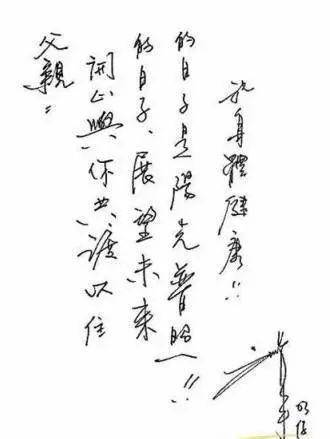 父親：
開心與你共渡以往
的日子、展望未来
的日子是陽光普照!!
祝身體健康!!